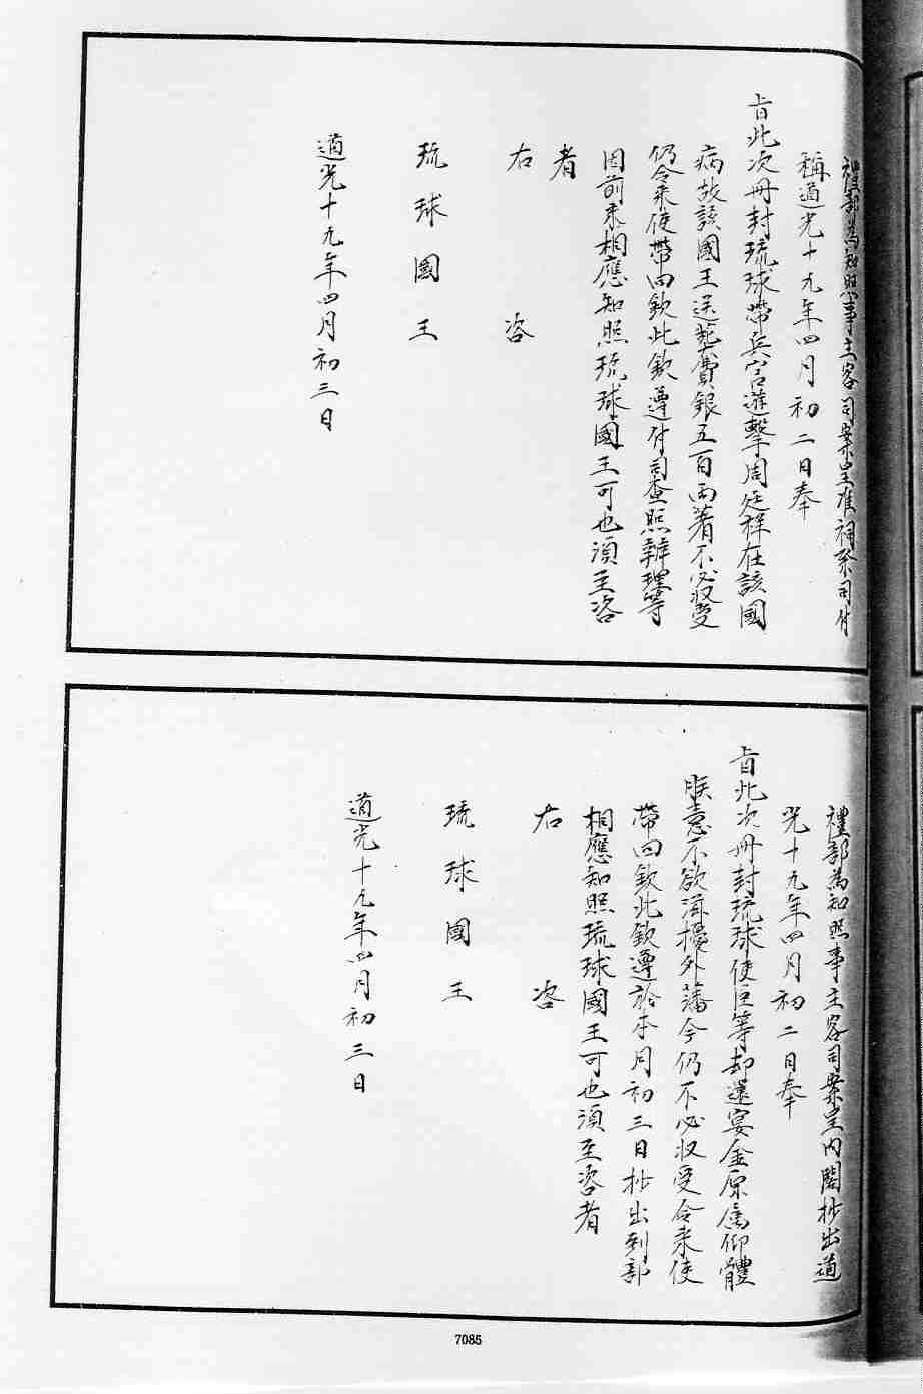 禮部為知照事主客司案呈准祠祭司付
稱道光十九年四月初二日奉
旨此次冊封琉球帶兵官遊擊周廷祥在該國
病故該國王送葬費銀五百両著不必収受
仍令来使帶回欽此欽遵付司查照辦理等
因前来相應知照琉球國王可也須至咨
者
右咨
琉球國王
道光十九年四月初三日
禮部為知照事主客司案呈内閣抄出道
光十九年四月初二日奉
旨此次冊封琉球使臣等却還宴金原屬仰體
朕意不欲滋擾外藩今仍不必収受令来使
帶回欽此欽遵於本月初三日抄出到部
相應知照琉球國王可也須至咨者
右咨
琉球國王
道光十九年四月初三日
7085